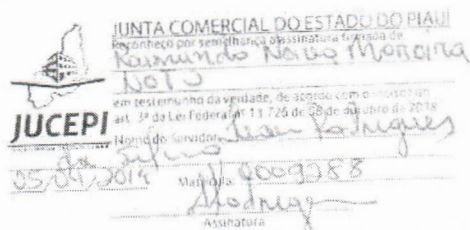 JUNTA COMERCIAL DO ESTADO DO PIAUÍ
Reconheço por semelhança a assinatura firmada de
Raimundo Naiva Moreira
Neto
em testemunho da verdade, de acordo com o
art. 3º da Lei Federal nº 13.726 de 08 de outubro de 2018
JUCEPI
Nome do Servidor: Jean Rodrigues
da Silva
05/04/2019 Matrícula: 0009288
Assinatura